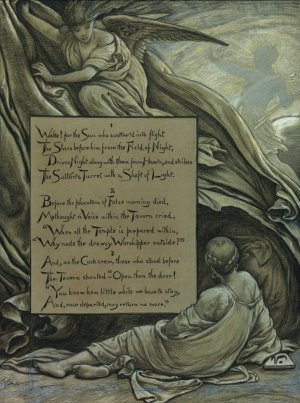 1
Wake! for the Sun who scatter'd into flight
The Stars before him from the Field of Night,
Drives Night along with them from Heav'n, and strikes
The Sultán's Turret with a Shaft of Light.
2
Before the phantom of False morning died,
Methought a Voice within the Tavern cried,
"When all the Temple is prepared within,
"Why nods the drowsy Worshipper outside?"
3
And, as the Cock crew, those who stood before
The Tavern shouted—"Open then the door!
"You know how little while we have to stay,
"And, once departed, may return no more."